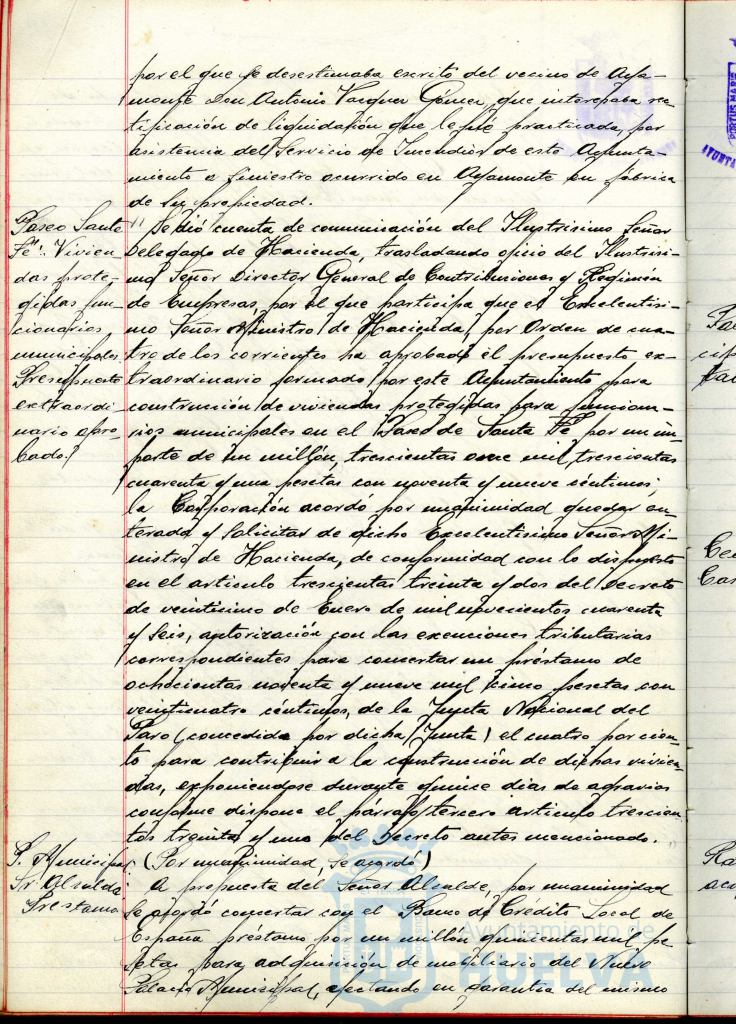 por el que se desestimaba escrito del vecino de Aya-
monte Don Antonio Vazquez Gómez, que interesaba rec
tificación de liquidación que le fué practicada, por
asistencia del Servicio de Incendios de este Ayunta-
miento a siniestro ocurrido en Ayamonte en fábrica
de su propiedad.
Paseo Santa
Fé". Vivien
das prote-
gidas fun-
cionarios
municipales.
Presupuesto
extraordi
nario apro-
bado.
" Se dió cuenta de comunicación del Ilustrisimo Señor
Delegado de Hacienda, trasladando oficio del Ilustrisi-
mo Señor Director General de Contribuciones y Regimén
de Empresas, por el que participa que el Excelentisi-
mo Señor Ministro de Hacienda, por Orden de cua-
tro de los corrientes ha aprobado el presupuesto ex-
traordinario formado por este Ayuntamiento para
construcción de viviendas protegidas para funciona-
rios municipales en el Paseo de Santa Fé por un im-
porte de un millón, trescientas once mil, trescientas
cuarenta y una pesetas con noventa y nueve céntimos;
la Corporación acordó por unanimidad quedar en-
terada y solicitar de dicho Excelentisimo Señor Mi-
nistro de Hacienda, de conformidad con lo dispuesto
en el articulo trescientos treinta y dos del Decreto
de veinticinco de Enero de mil novecientos cuarenta
y seis, autorización con las exenciones tributarias
correspondientes para concertar un préstamo de
ochocientas noventa y nueve mil cinco pesetas con
veinticuatro céntimos, de la Junta Nacional del
Paro (concedida por dicha Junta) el cuatro por cien-
to para contribuir a la construcción de dichas vivien-
das, exponiendose durante quince dias de agravios
conforme dispone el párrafo tercero articulo trescien-
tos treinta y uno del Decreto antes mencionado.
P. Municipal
Sr. Alcalde
Prestamo
(Por unanimidad, se acordó)
A propuesta del Señor Alcalde, por unanimidad
se acordó concertar con el Banco de Crédito Local de
España préstamo por un millón quinientas mil pe
setas para adquisición de mobiliario del Nuevo
Palacio Municipal, afectando en garantia del mismo
Ayuntamiento de
HUELVA